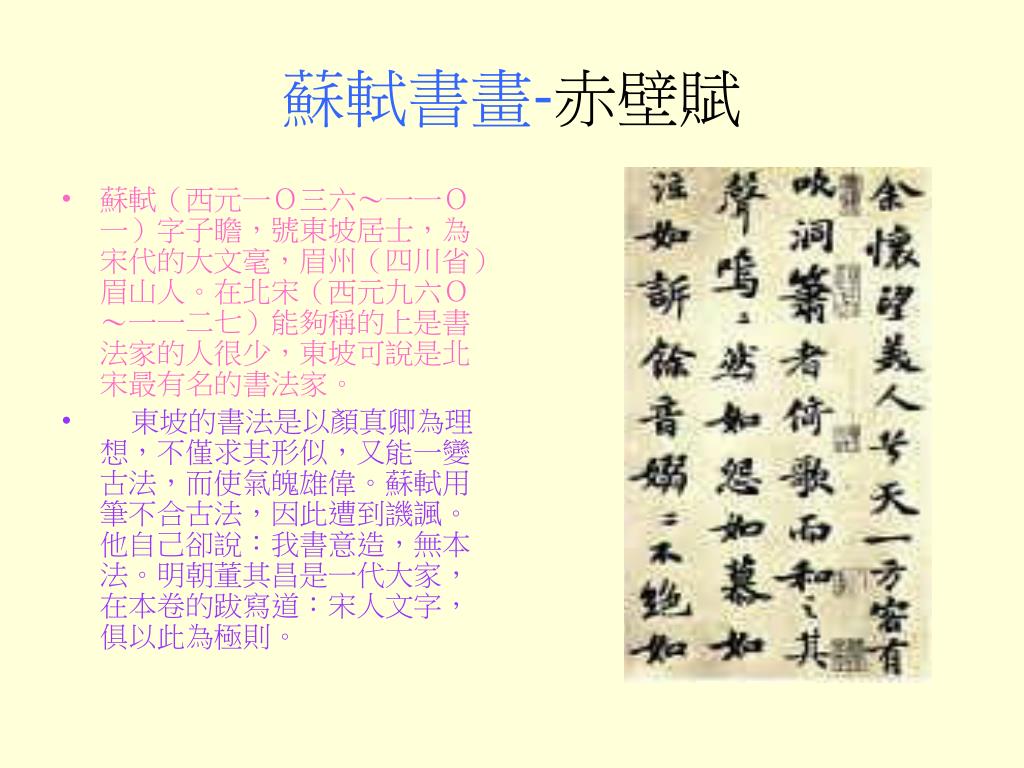 蘇軾書畫-赤壁賦
• 蘇軾（西元一Ｏ三六～一一Ｏ
一）字子瞻，號東坡居士，為
宋代的大文毫，眉州（四川省）
眉山人。在北宋（西元九六Ｏ
～一一二七）能夠稱的上是書
法家的人很少，東坡可說是北
宋最有名的書法家。
• 東坡的書法是以顏真卿為理
想，不僅求其形似，又能一變
古法，而使氣魄雄偉。蘇軾用
筆不合古法，因此遭到譏諷。
他自己卻說：我書意造，無本
法。明朝董其昌是一代大家，
在本卷的跋寫道：宋人文字，
俱以此為極則。
余懷望美人兮天一方客有
吹洞簫者倚歌而和之其
聲嗚〻然如怨如慕如
泣如訴餘音嫋〻不絶如